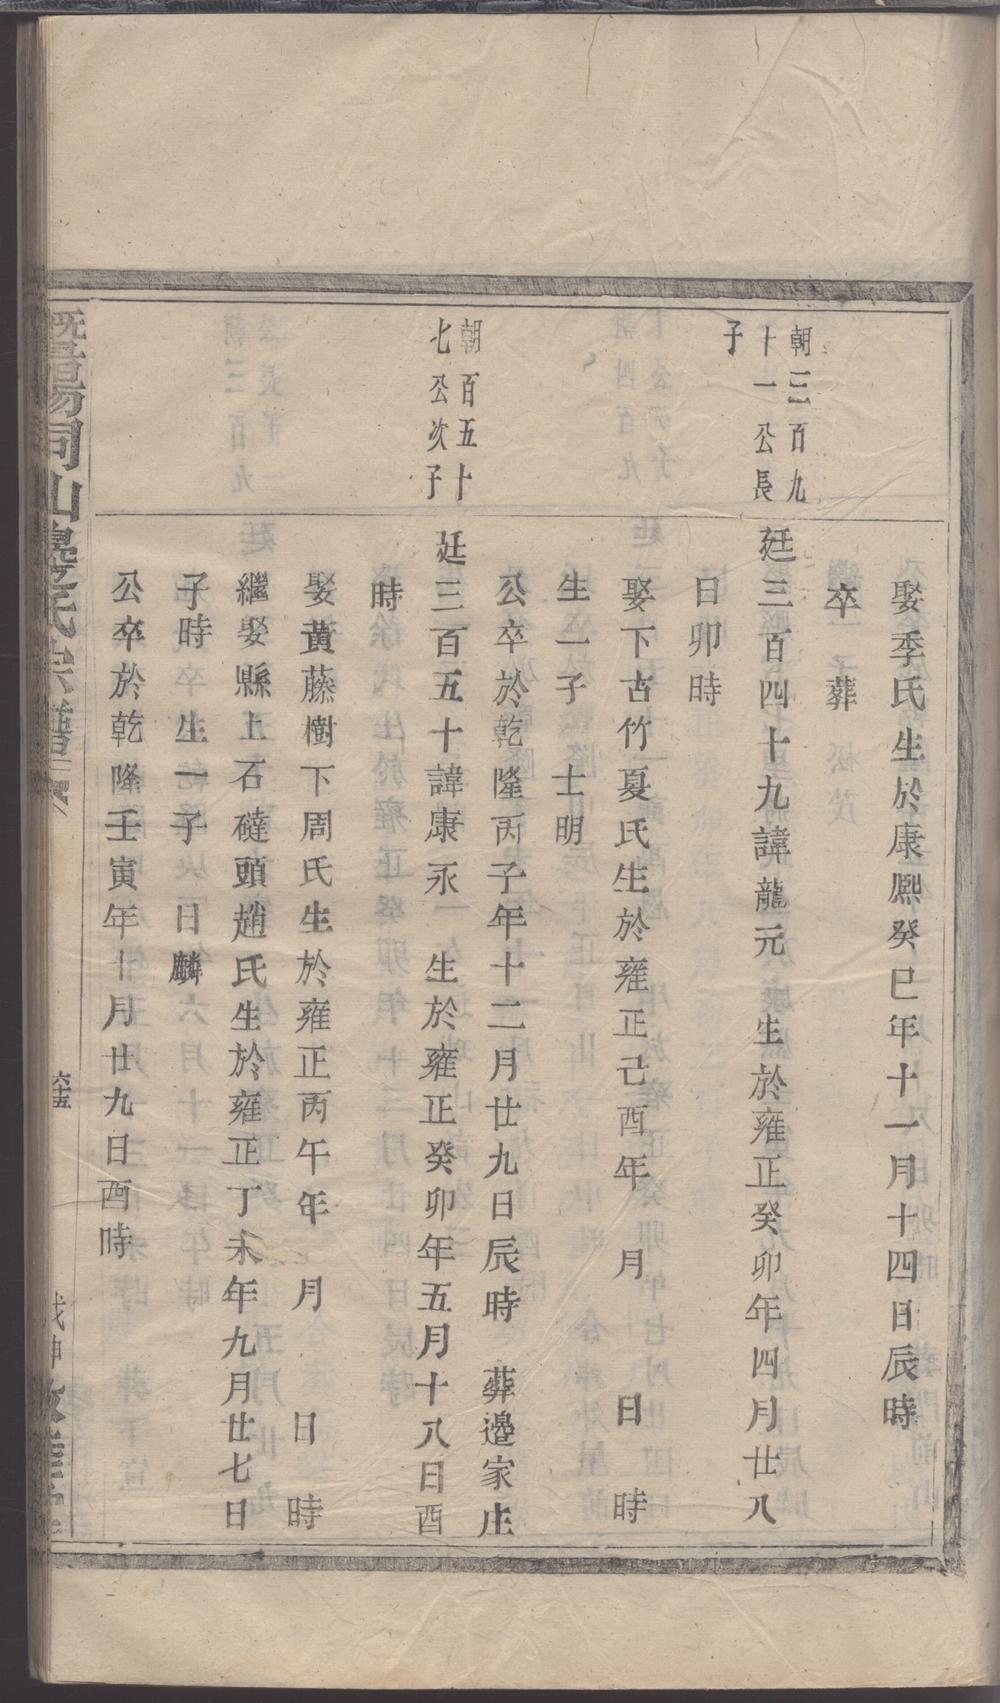 娶季氏生於康熈癸巳年十一月十四日辰時
卒　葬
朝三百九
十一公長
子
廷三百四十九諱龍元　生於雍正癸卯年四月廿八
日卯時
娶下古竹夏氏生於雍正己酉年　月　日　時
生一子　士明
公卒於乾隆丙子年十二月廿九日辰時　葬邊家庄
朝百五十
七公次子
廷三百五十諱康永　生於雍正癸卯年五月十八日酉
時
娶黃藤樹下周氏生於雍正丙午年　月　日　時
繼娶縣上石礎頭趙氏生於雍正丁未年九月廿七日
子時　生一子　日麟
公卒於乾隆壬寅年十月廿九日酉時
暨陽同山邊氏宗譜
戊申